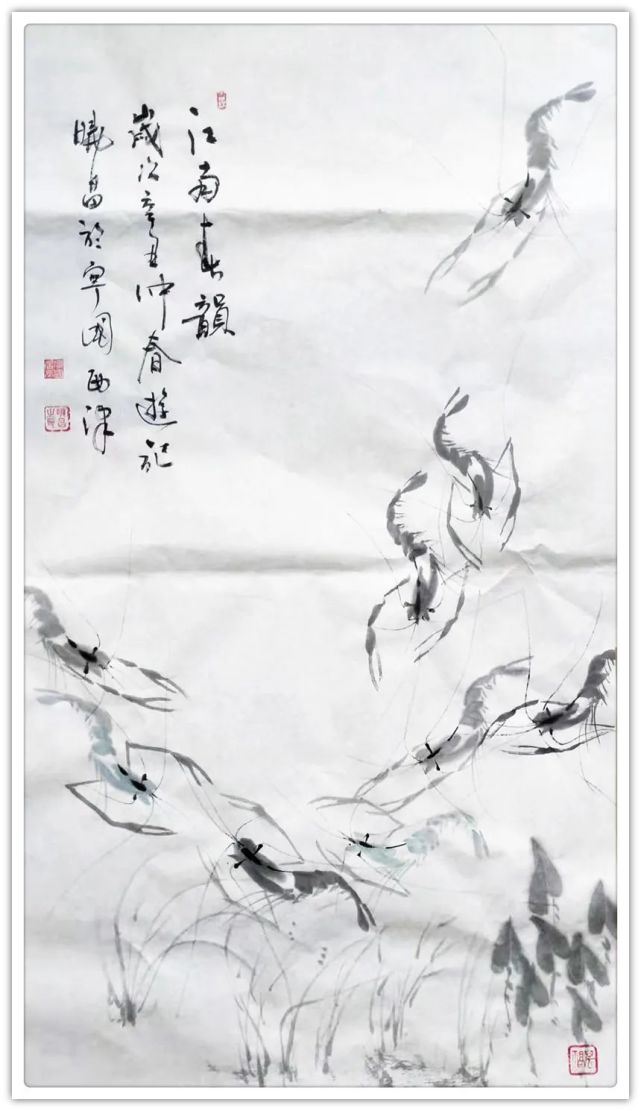 江南春韻
歲次辛丑仲春遊記
曉昌於寧國西津